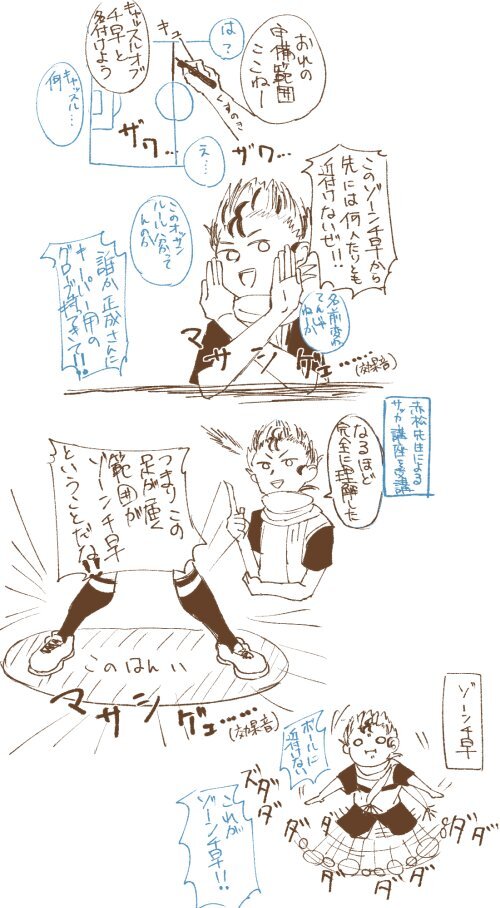 おれの
守備範囲
ここねー
キュ
は?
キャッスルオブ
千早と
名付けよう
キャッスル…
何
ザワ…
ザワ…
え…
このゾーン千早から
先には何人たりとも
近付けないぜ!!
このオッサン
ルール分かって
んのか
名前変わっ
てんじゃ
ねぇか
誰か正成さんに
キーパー用の
グローブ持ってきて!!
マサシゲェ……
(効果音)
赤松先生による
サッカー講座を受講
なるほど
完全に理解した
つまりこの
足が届く
範囲が
ゾーン千早
ということだな!!
このはんい
マサシゲェ……
(効果音)
ゾーン千早
ボールに
近付けない
ズダダ
ダダ
ダ
ダ
ダ
ダ
ダダ
これが
ゾーン千早!!